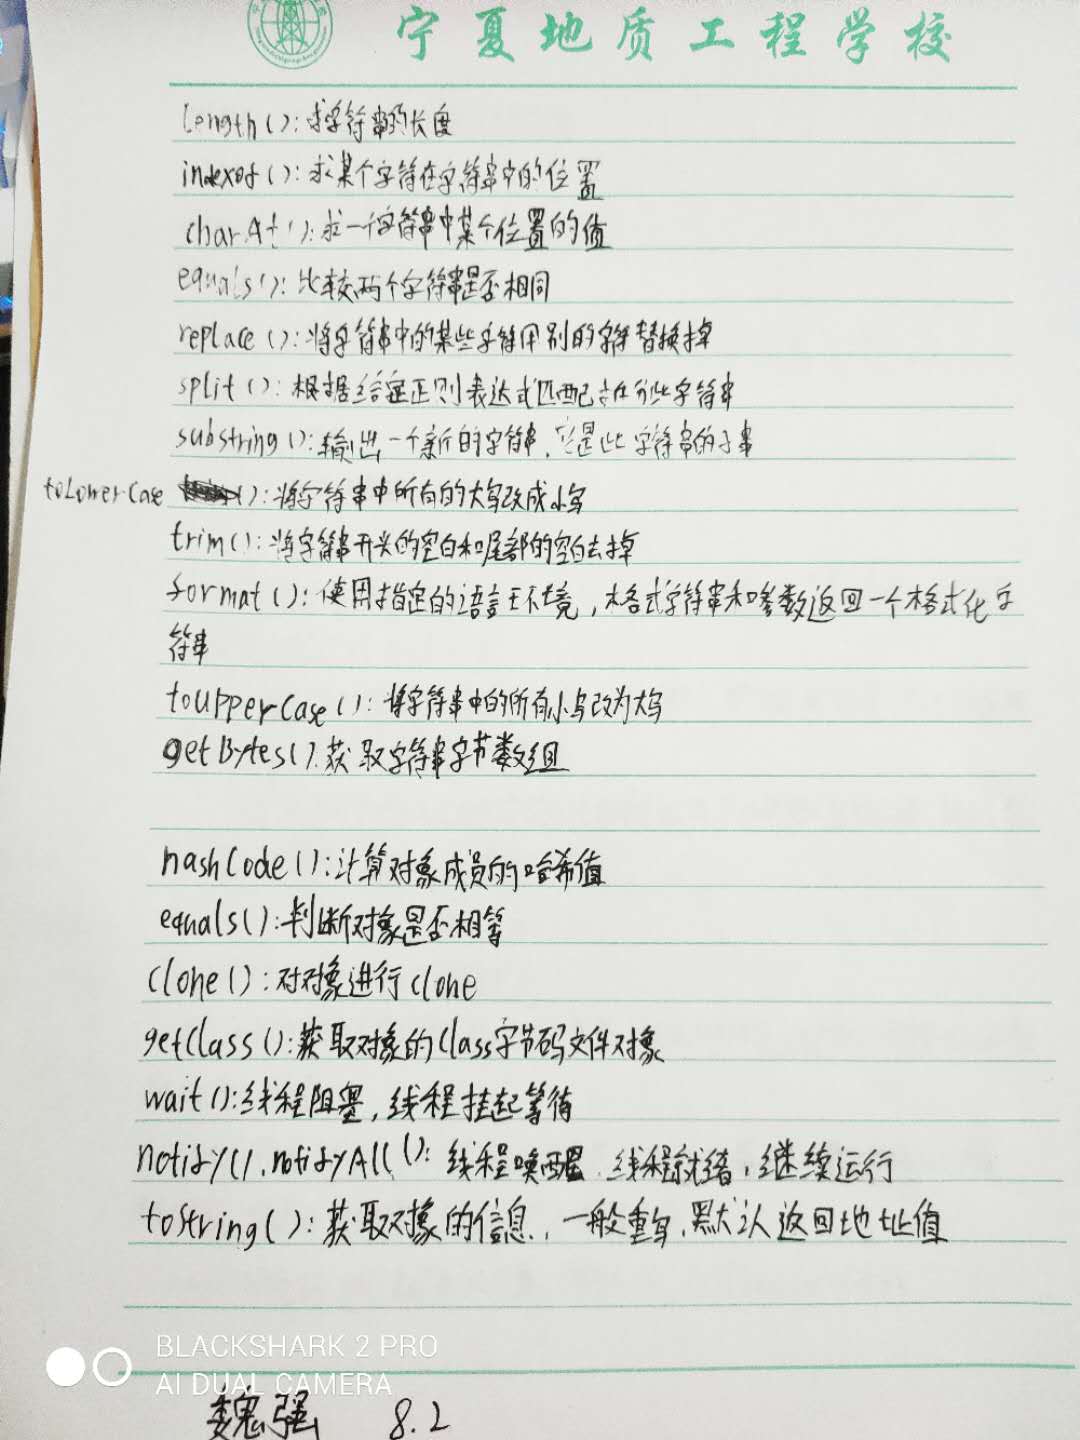 宁夏地质工程学校
length():求字符串的长度
indexof():求某个字符在字符串中的位置
charAt():求一个字符串中某个位置的值
equals():比较两个字符串是否相同
replace():将字符串中的某些字符用别的字符替换掉
split():根据给定正则表达式匹配拆分此字符串
substring():输出一个新的字符串,它是此字符串的子串
toLowerCase():将字符串中所有的大写改成小写
trim():将字符串开头的空白和尾部的空白去掉
format():使用指定的语言环境,格式字符串和参数返回一个格式化字
符串
toUpperCase():将字符串中的所有小写改为大写
getBytes().获取字符串字节数组
hashCode():计算对象成员的哈希值
equals():判断对象是否相等
clone():对对象进行clone
getClass():获取对象的Class字节码文件对象
wait():线程阻塞,线程挂起等待
notify(),notifyAll():线程唤醒,线程就绪,继续运行
toString():获取对象的信息,一般重写,默认返回地址值
BLACKSHARK 2 PRO
AI DUAL CAMERA
魏强 8.2